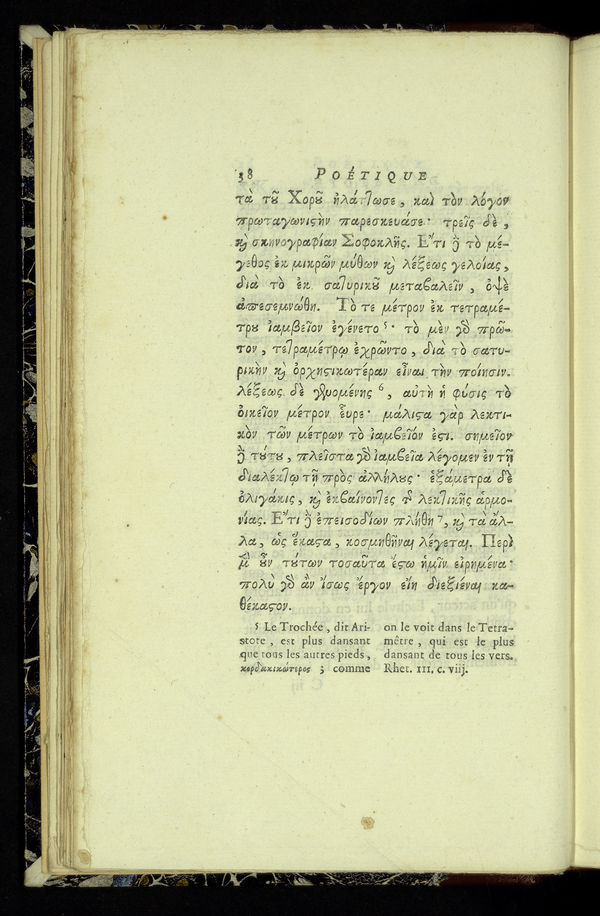 38 POÉTIQUE
τὰ τȣ͂ Χορȣ͂ ἠλάτ͡ωσε, καὶ τὸν λόγον
πρωταγωνιϛὴν παρεσκευάσε· τρεῖς δὲ,
ϗ σκηνογραφίαν Σοφοκλῆς. Ἔτι ȣ τὸ μέ-
γεθος ἐκ μικρῶν μύθων ϗ λέξεως γελοίας,
διὰ τὸ ἐκ σατυρικȣ͂ μεταβαλεῖν, ὀψὲ
ἀπεσεμνώθη. Τὸ τε μέτρον ἐκ τετραμέ-
τρȣ ἰαμβεῖον ἐγένετο 5· τὸ μὲν γὸ πρῶ-
τον, τετραμέτρῳ ἐχρῶντο, διὰ τὸ σατυ-
ρικὴν ϗ ὀρχηϛικωτέραν εἶναι τὴν ποίησιν.
λέξεως δὲ γενομένης 6, αὐτὴ ἡ φύσις τὸ
οἰκεῖον μέτρον εὗρε· μάλιϛα γὰρ λεκτι-
κὸν τῶν μέτρων τὸ ἰαμβεῖόν ἐϛι. σημεῖον
δὲ τȣ́τȣ, πλεῖϛα γὸ ἰαμβεῖα λέγομεν ἐν τῇ
διαλέκτῳ τῇ πρὸς ἀλλήλȣς· ἑξάμετρα δὲ
ὀλιγάκις, ϗ ἐκβαίνοντες τῆς λεκτικῆς ἁρμο-
νίας. Ἔτι δὲ ἐπεισοδίων πλήθη 7, ϗ τὰ ἄλ-
λα, ὡς ἕκαϛα, κοσμηθῆναι λέγεται. Περὶ
μὲν ȣ̓͂ν τȣ́των τοσαῦτα ἔϛω ἡμῖν εἰρημένα·
πολὺ γὸ ἂν ἴσως ἔργον εἴη διεξιέναι κα-
θέκαϛον.
5 Le Trochée, dit Ari-
stote, est plus dansant
que tous les autres pieds,
κορδακικώτερος; comme
on le voit dans le Tetra-
mêtre, qui est le plus
dansant de tous les vers.
Rhet. III. c. viij.